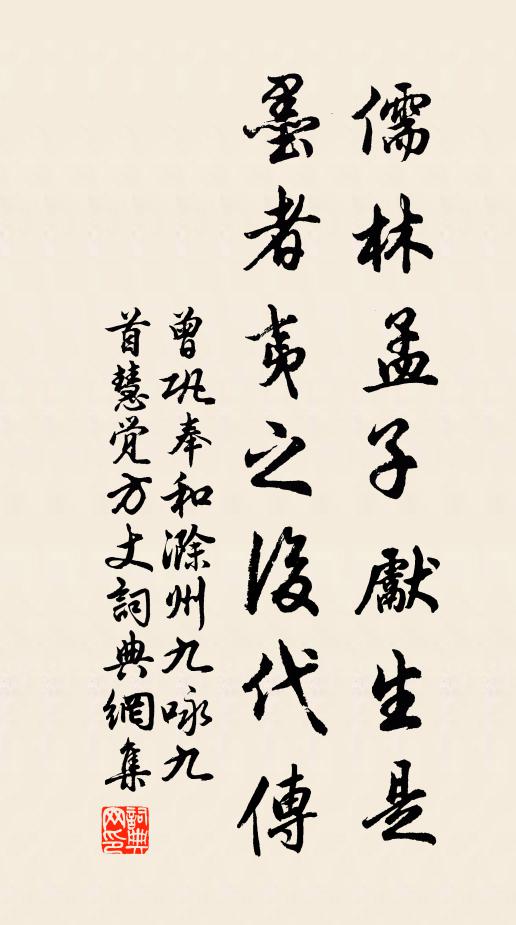 儒林孟子獻生是
墨者夷之後代傳
曾巩奉和滁州九咏九
首慧觉方丈詞典網集
詞典
网印